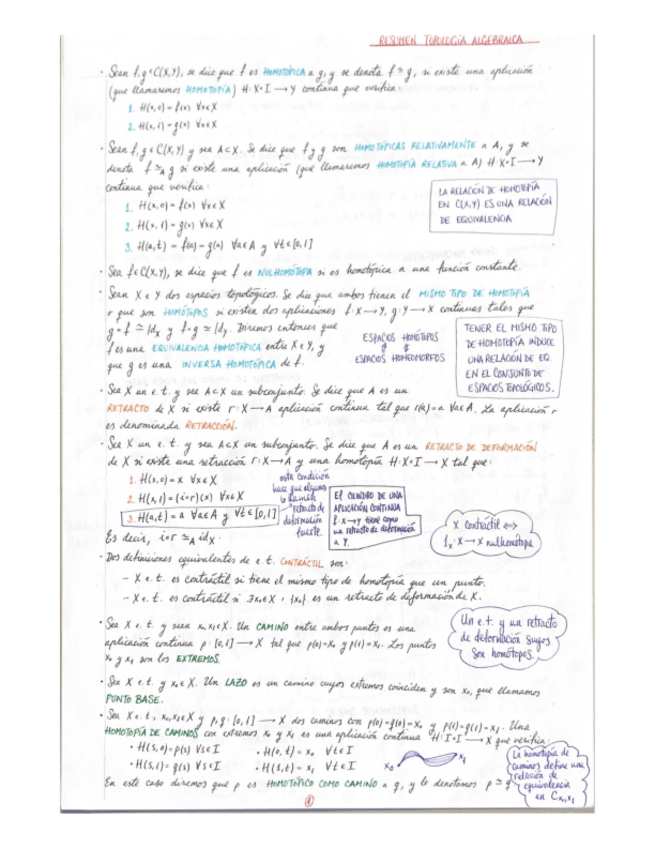 RESUMEN TOPOLOGÍA ALGEBRAICA
· Sean f,g∈C(X,Y), se dice que f es HOMOTÓPICA a g, y se denota f≃g, si existe una aplicación
(que llamaremos HOMOTOPÍA) H: X×I → Y continua que verifica:
1. H(x,0)=f(x) ∀x∈X
2. H(x,1)=g(x) ∀x∈X
· Sean f,g∈C(X,Y) y sea A⊂X. Se dice que f y g son HOMOTÓPICAS RELATIVAMENTE a A, y se
denota f≃_A g si existe una aplicación (que llamaremos HOMOTOPÍA RELATIVA a A) H: X×I → Y
continua que verifica:
1. H(x,0)=f(x) ∀x∈X
2. H(x,1)=g(x) ∀x∈X
3. H(a,t)=f(a)=g(a) ∀a∈A y ∀t∈[0,1]
LA RELACIÓN DE HOMOTOPÍA
EN C(X,Y) ES UNA RELACIÓN
DE EQUIVALENCIA
· Sea f∈C(X,Y), se dice que f es NULHOMÓTOPA si es homotópica a una función constante.
· Sean X e Y dos espacios topológicos. Se dice que ambos tienen el MISMO TIPO DE HOMOTOPÍA
o que son HOMÓTOPOS si existen dos aplicaciones f: X→Y, g: Y→X continuas tales que
g∘f ≃ Id_X y f∘g ≃ Id_Y. Diremos entonces que
f es una EQUIVALENCIA HOMOTÓPICA entre X e Y, y
que g es una INVERSA HOMOTÓPICA de f.
ESPACIOS HOMÓTOPOS
ESPACIOS HOMEOMORFOS
TENER EL MISMO TIPO
DE HOMOTOPÍA INDUCE
UNA RELACIÓN DE EQ.
EN EL CONJUNTO DE
ESPACIOS TOPOLÓGICOS.
· Sea X un e.t. y sea A⊂X un subconjunto. Se dice que A es un
RETRACTO de X si existe r: X→A aplicación continua tal que r(a)=a ∀a∈A. La aplicación r
es denominada RETRACCIÓN.
· Sea X un e.t. y sea A⊂X un subconjunto. Se dice que A es un RETRACTO DE DEFORMACIÓN
de X si existe una retracción r: X→A y una homotopía H: X×I → X tal que:
1. H(x,0)=x ∀x∈X
2. H(x,1)=(i∘r)(x) ∀x∈X
3. H(a,t)=a ∀a∈A y ∀t∈[0,1]
Es decir, i∘r ≃_A id_X.
esta condición
hace que algunos
lo llamen
retracto de
deformación
fuerte.
EL CILINDRO DE UNA
APLICACIÓN CONTINUA
f: X→Y tiene como
un retracto de deformación
a Y.
X contráctil ⟺
1_X: X→X nulhomótopa
· Dos definiciones equivalentes de e.t. CONTRÁCTIL son:
– X e.t. es contráctil si tiene el mismo tipo de homotopía que un punto.
– X e.t. es contráctil si ∃x₀∈X : {x₀} es un retracto de deformación de X.
· Sea X e.t. y sean x₀,x₁∈X. Un CAMINO entre ambos puntos es una
aplicación continua p: [0,1] → X tal que p(0)=x₀ y p(1)=x₁. Los puntos
x₀ y x₁ son los EXTREMOS.
Un e.t. y un retracto
de deformación suyos
son homótopos.
· Sea X e.t. y x₀∈X. Un LAZO es un camino cuyos extremos coinciden y son x₀, que llamamos
PUNTO BASE.
· Sea X e.t., x₀,x₁∈X y p,q: [0,1] → X dos caminos con p(0)=q(0)=x₀ y p(1)=q(1)=x₁. Una
HOMOTOPÍA DE CAMINOS con extremos x₀ y x₁ es una aplicación continua H: I×I → X que verifica:
· H(s,0)=p(s) ∀s∈I · H(0,t)=x₀ ∀t∈I
· H(s,1)=q(s) ∀s∈I · H(1,t)=x₁ ∀t∈I
x₀ x₁
En este caso diremos que p es HOMOTÓPICO COMO CAMINO a q, y lo denotamos p≃q
La homotopía de
caminos define una
relación de
equivalencia
en C_x₀,x₁
1